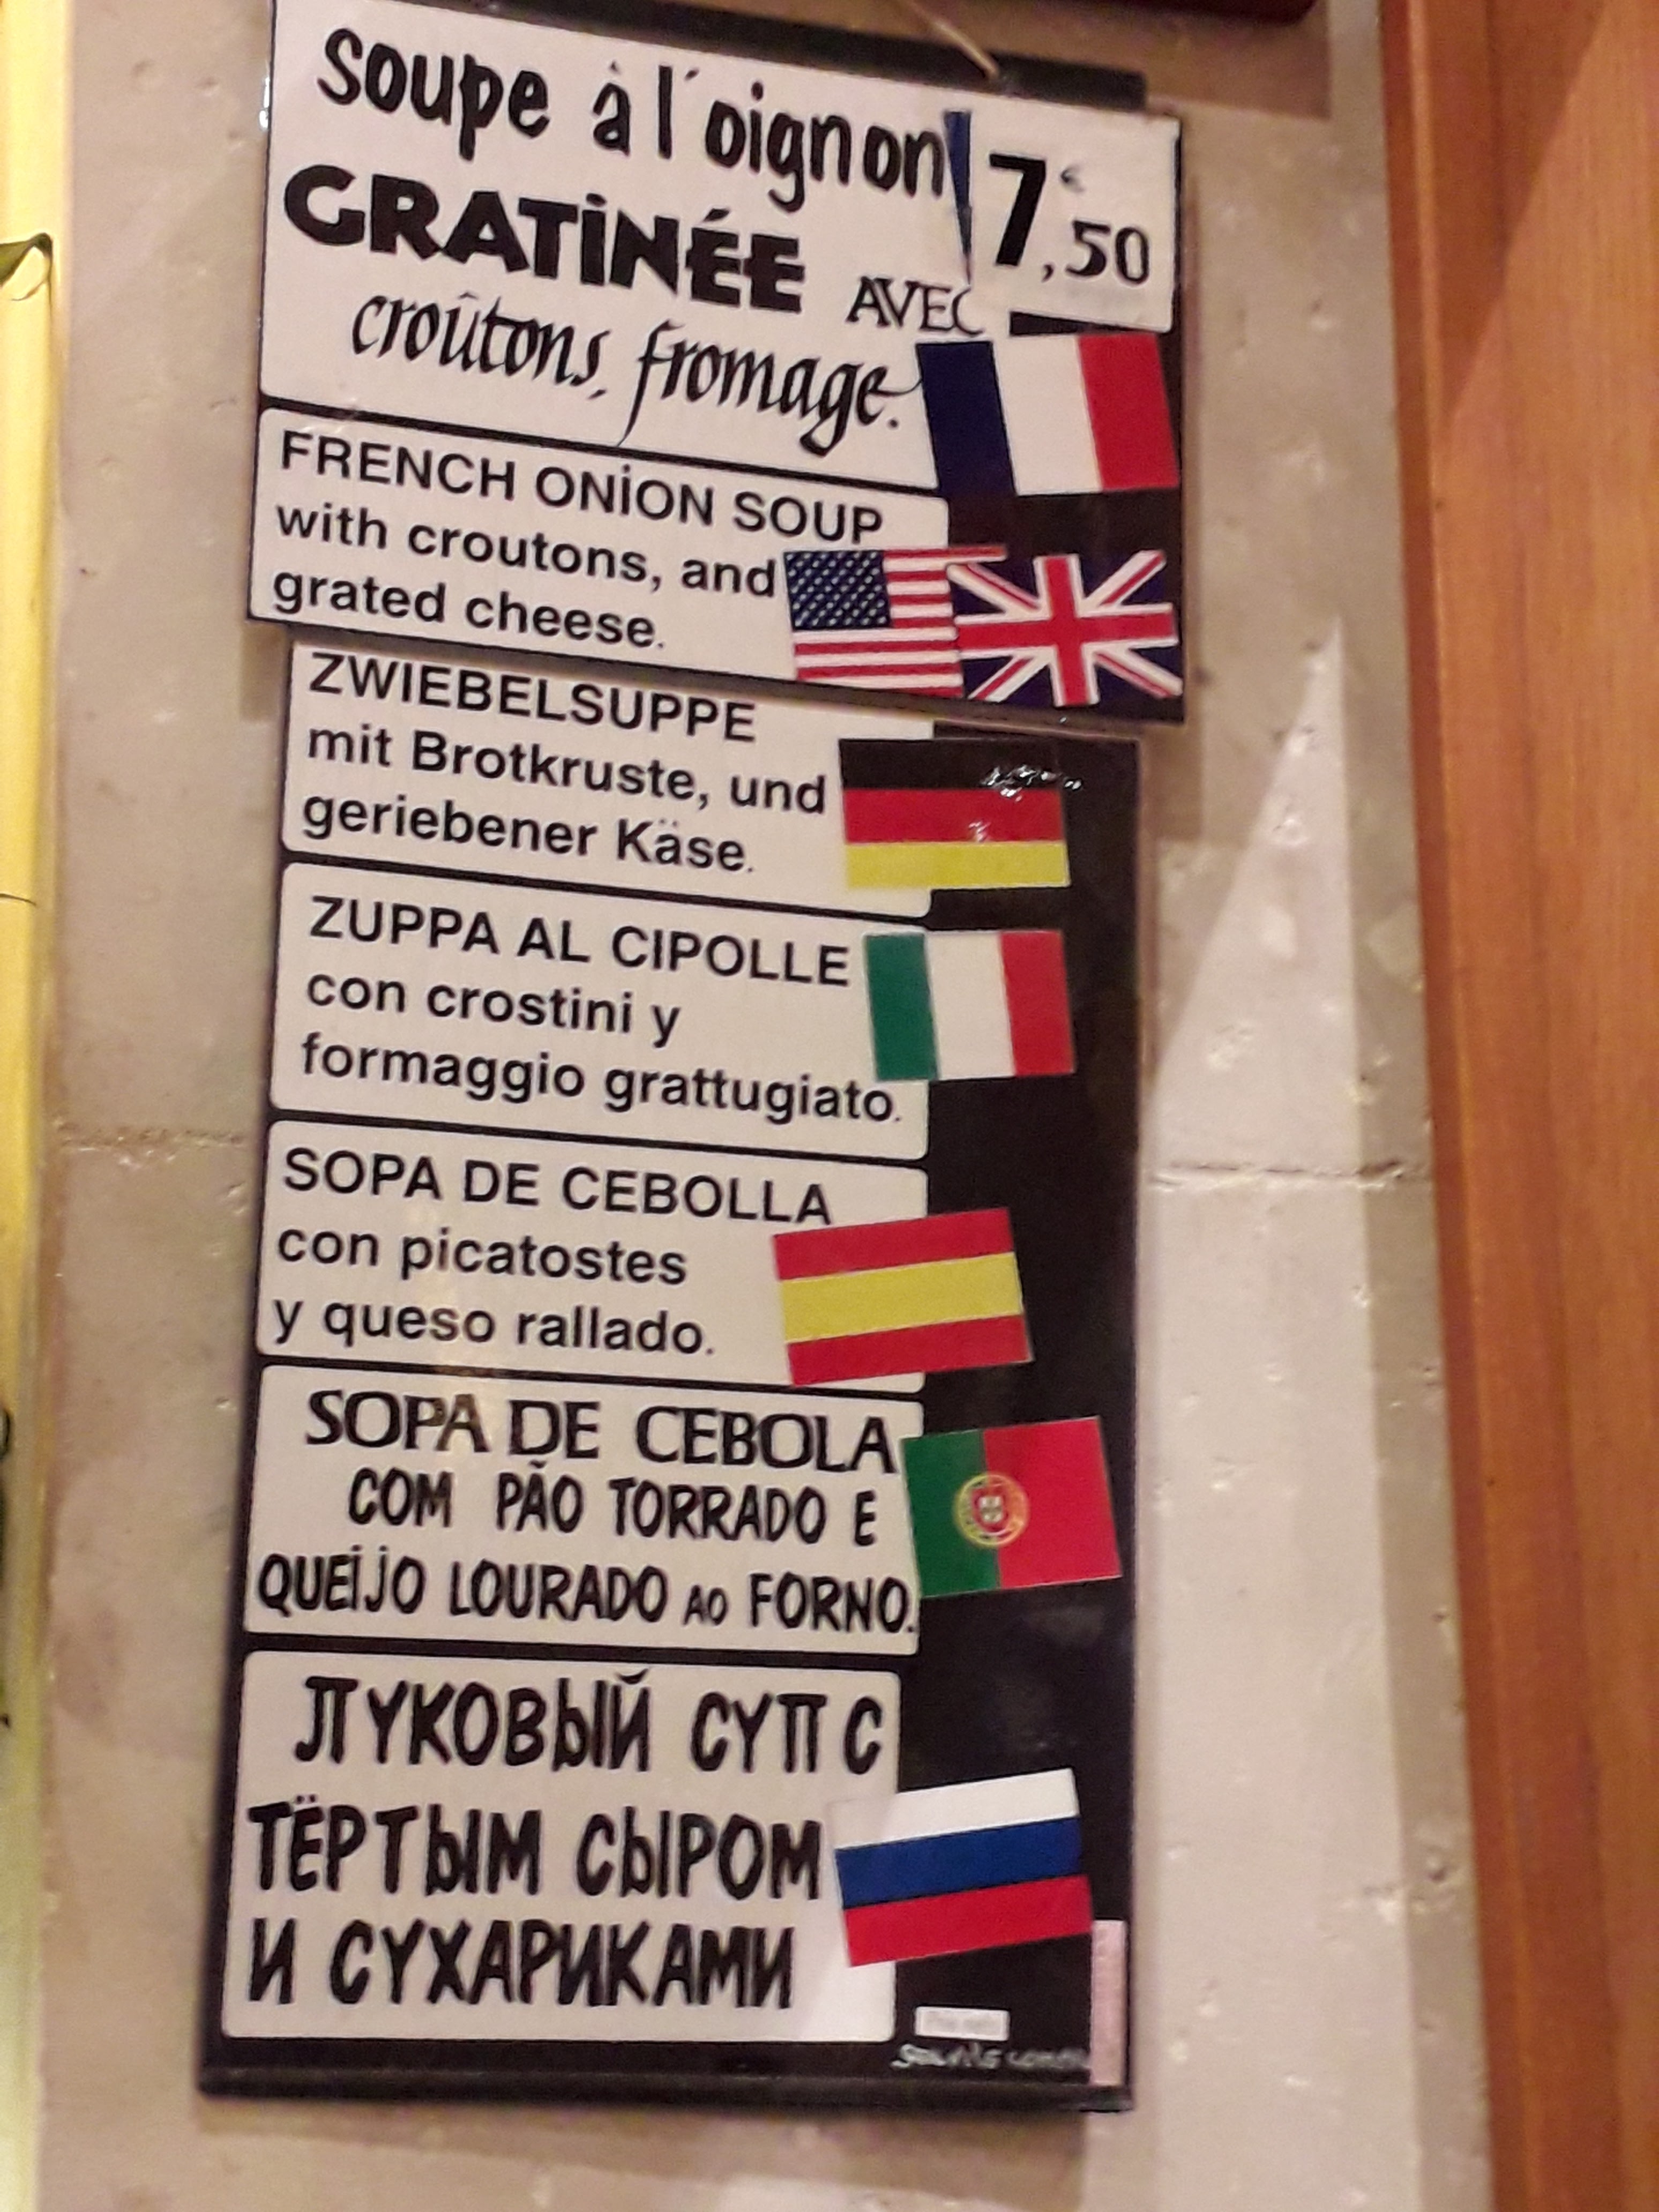 soupe à l'oignon
7€,50
GRATINÉE AVEC
croûtons, fromage.
FRENCH ONİON SOUP
with croutons, and
grated cheese.
ZWIEBELSUPPE
mit Brotkruste, und
geriebener Käse.
ZUPPA AL CIPOLLE
con crostini y
formaggio grattugiato.
SOPA DE CEBOLLA
con picatostes
y queso rallado.
SOPA DE CEBOLA
COM PÃO TORRADO E
QUEIJO LOURADO AO FORNO.
ЛУКОВЫЙ СУП С
ТЁРТЫМ СЫРОМ
И СУХАРИКАМИ